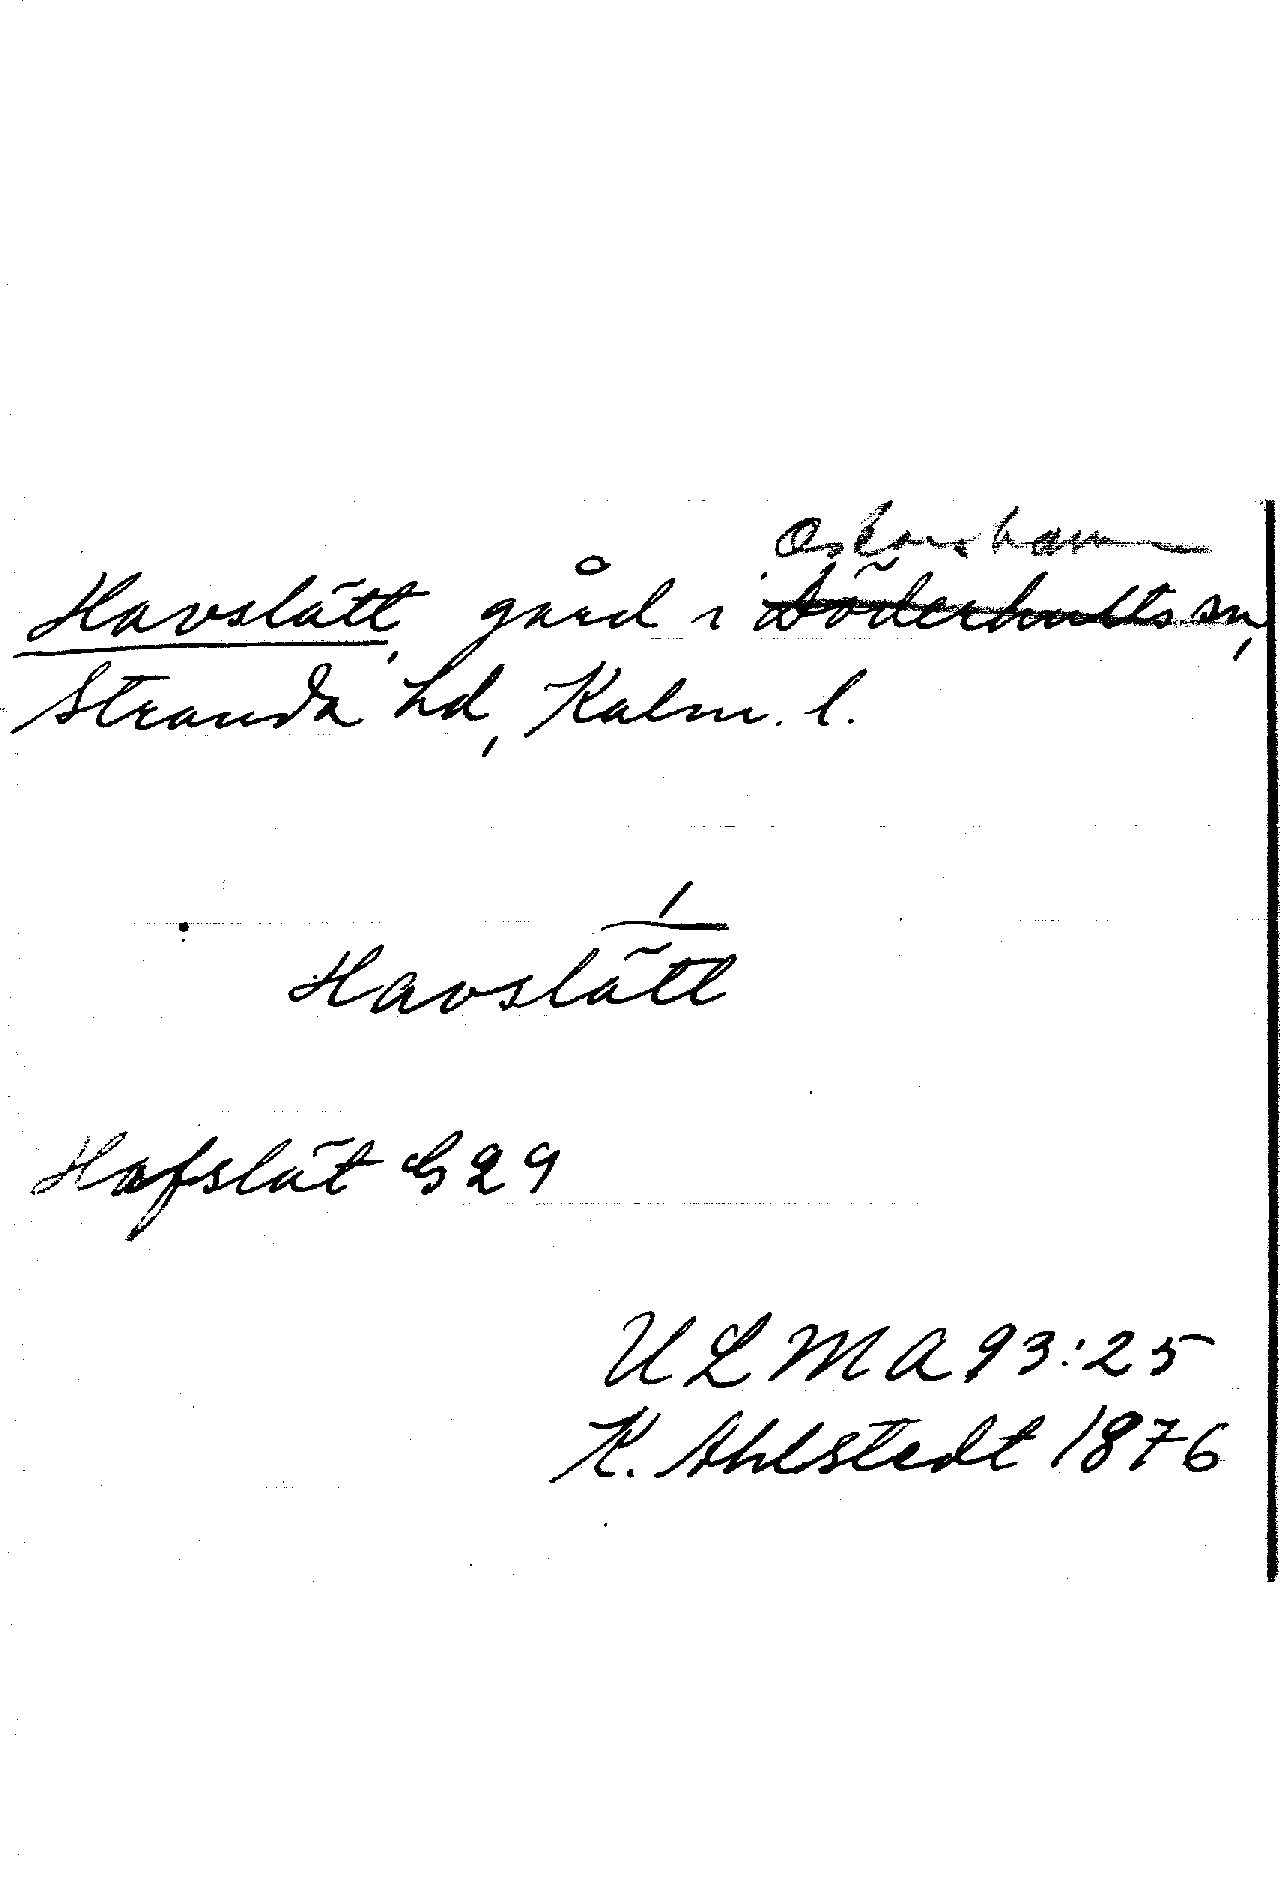 Oskarshamn
Havslätt, gård i Döderhults sn,
Stranda hd, Kalm. l.
Havslätt
Hafslät G 29
ULMA 93:25
K. Ahlstedt 1876